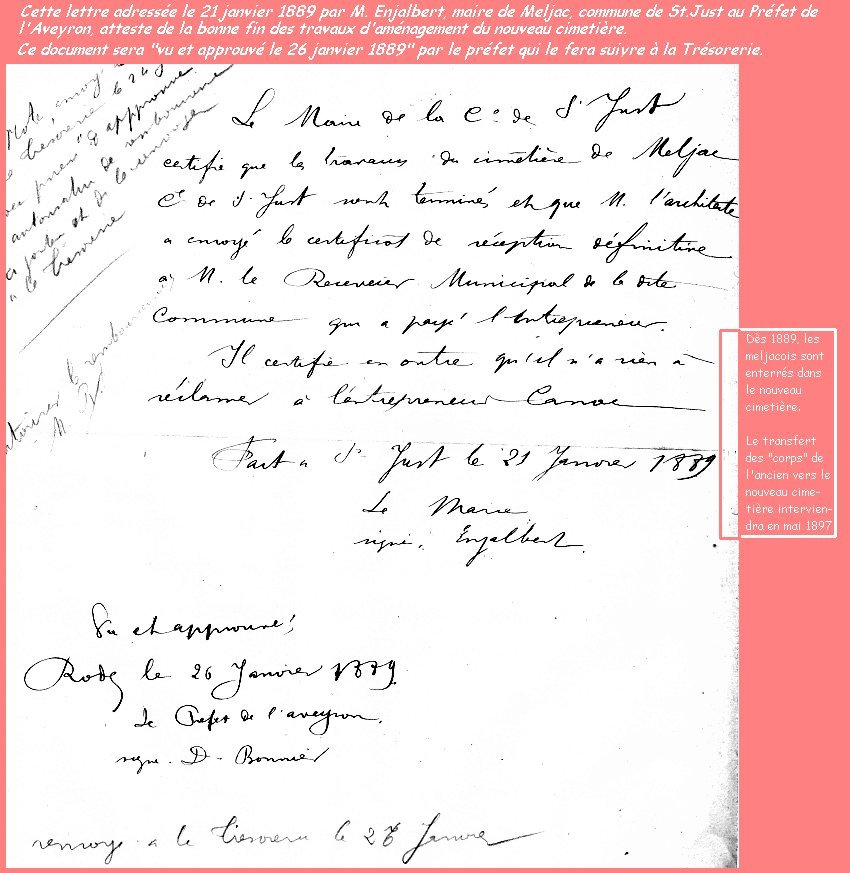 Cette lettre adressée le 21 janvier 1889 par M. Enjalbert, maire de Meljac, commune de St.Just au Préfet de
l'Aveyron, atteste de la bonne fin des travaux d'aménagement du nouveau cimetière.
Ce document sera "vu et approuvé le 26 janvier 1889" par le préfet qui le fera suivre à la Trésorerie.
Le Maire de la Cne de St Just
certifie que les travaux du cimetière de Meljac
Cne de St Just sont terminés et que M. l'architecte
a envoyé le certificat de réception définitive
à M. le Receveur Municipal de la dite
Commune qui a payé l'entrepreneur.
Il certifie en outre qu'il n'a rien à
réclamer à l'entrepreneur
Fait à St Just le 21 Janvier 1889
Le Maire
signé. Enjalbert
Vu et approuvé
Rodez le 26 Janvier 1889
Le Préfet de l'aveyron.
signé. D. Bonnier
renvoyé a la trésorerie le Janvier
Dès 1889, les
meljacois sont
enterrés dans
le nouveau
cimetière.
Le transfert
des "corps" de
l'ancien vers le
nouveau cime-
tière intervien-
dra en mai 1897